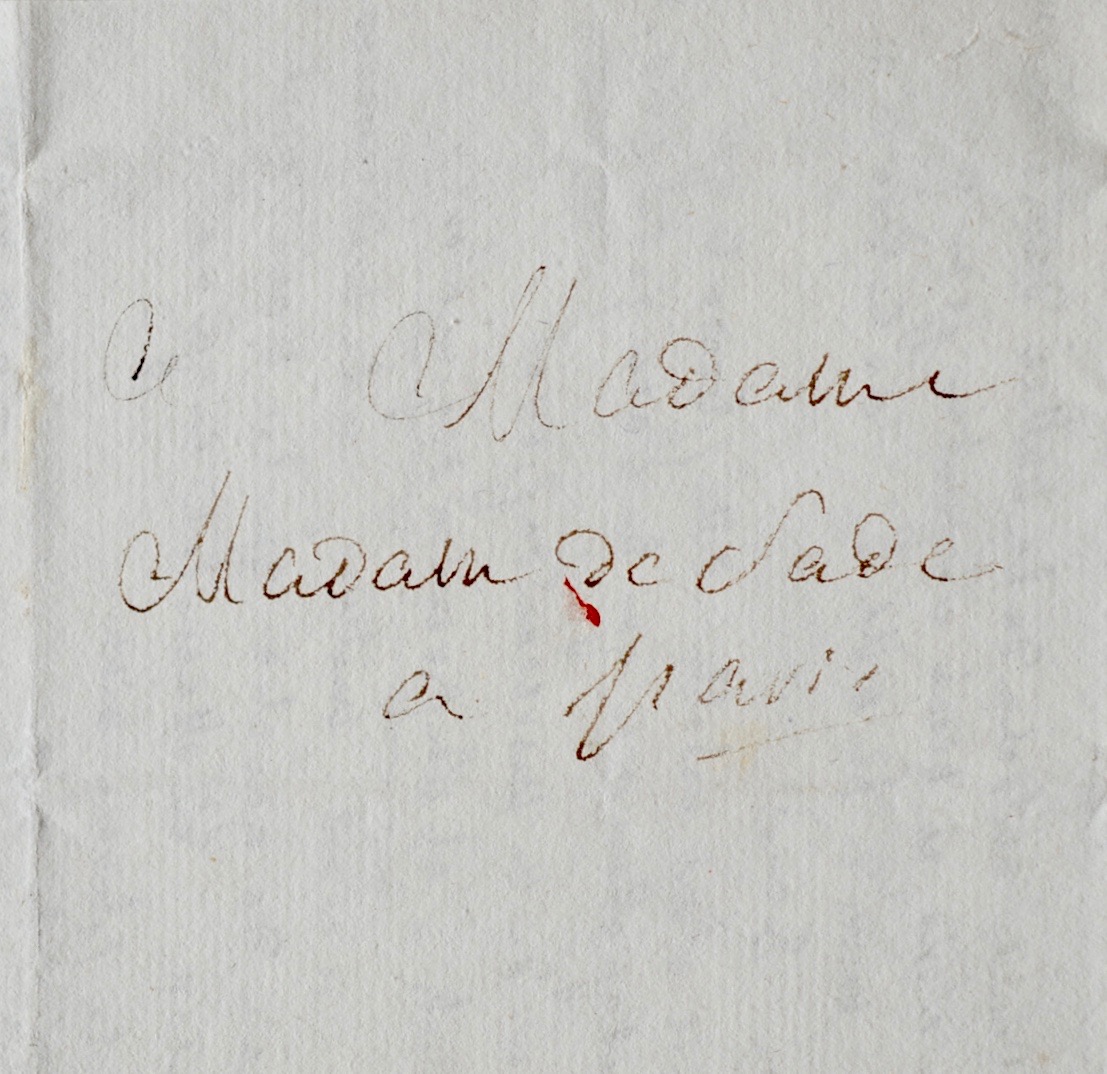 a Madame
Madame de Sade
a paris